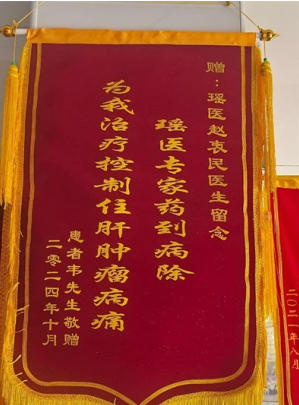 赠：瑶医赵衷民医生留念
瑶医专家药到病除
为我治疗控制住肝肿瘤病痛
患者韦先生敬赠
二零二四年十月
二〇二一年八月